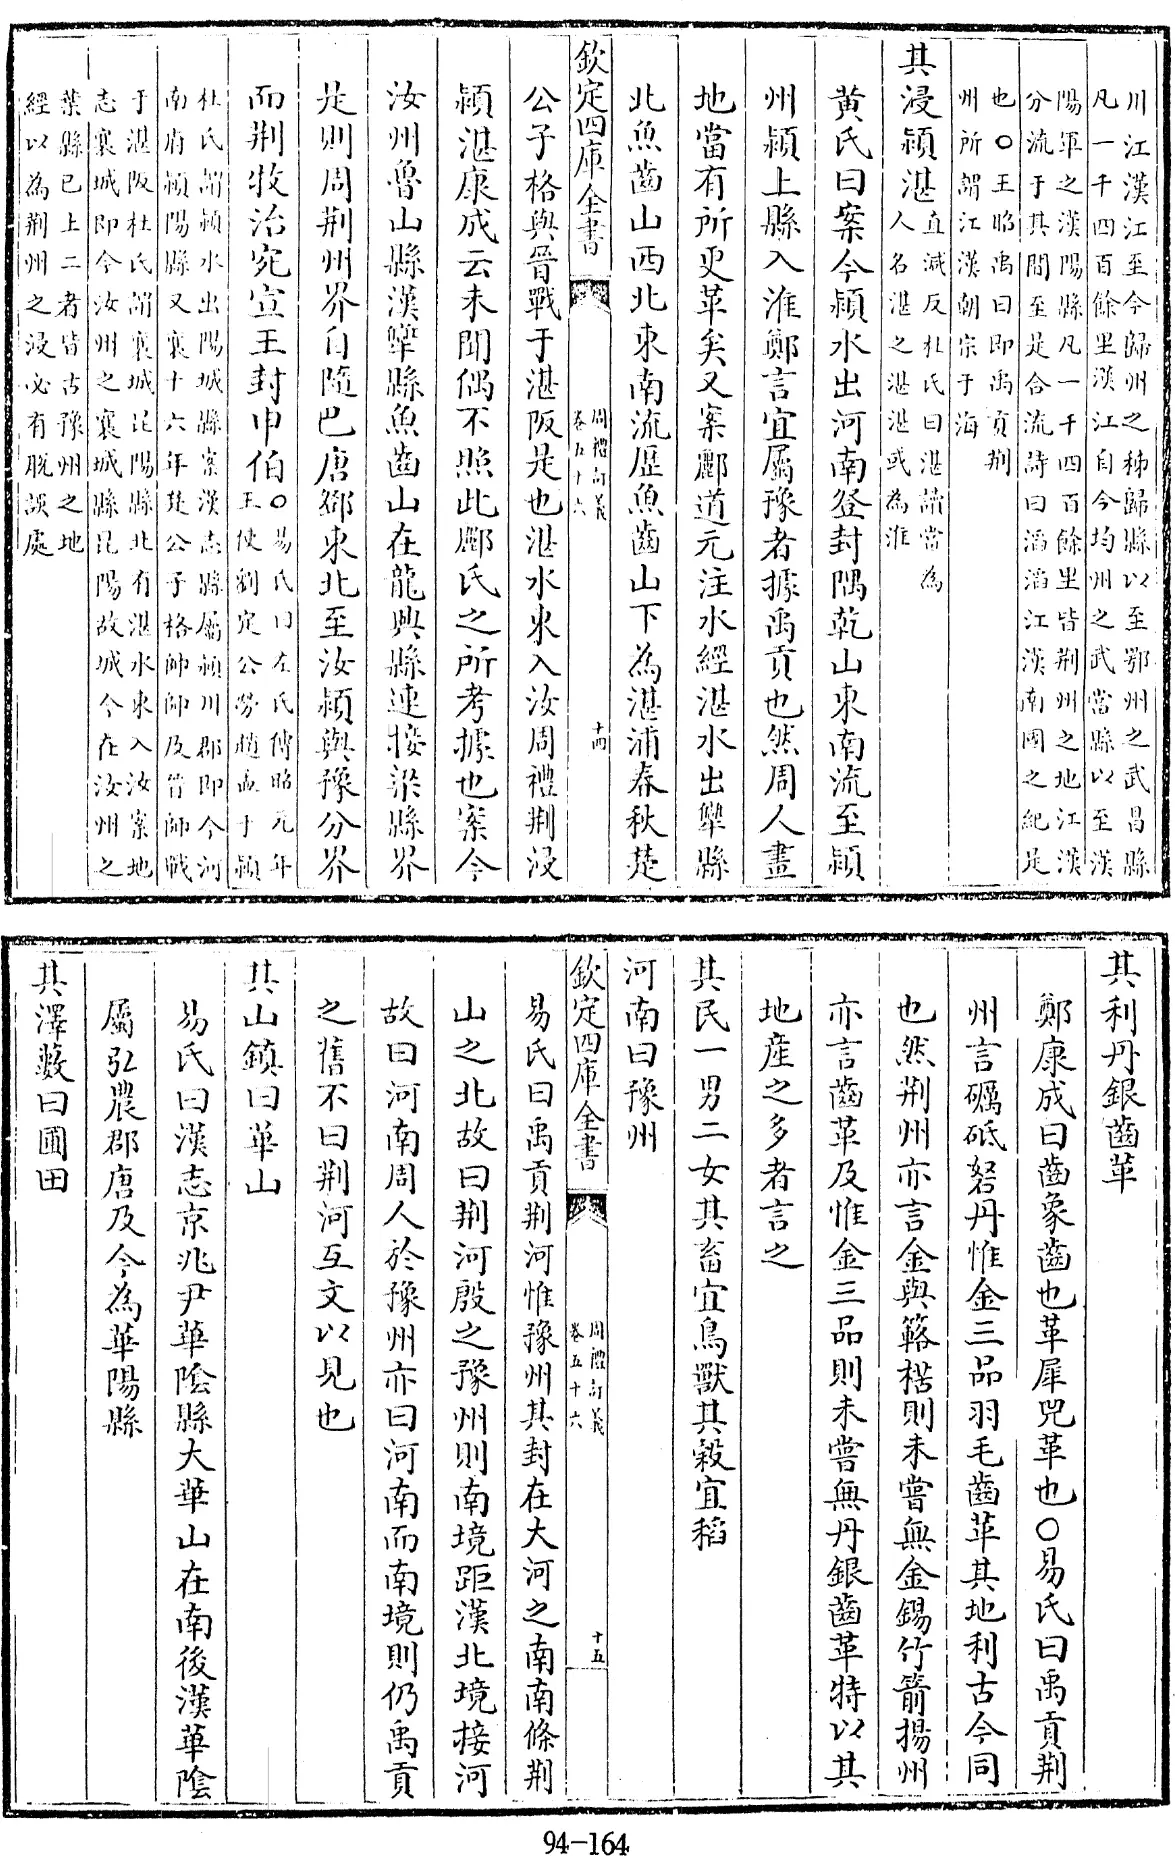 川江漢江至今歸州之秭歸縣以至鄂州之武昌縣
凡一千四百餘里漢江自今均州之武當縣以至漢
陽軍之漢陽縣凡一千四百餘里皆荆州之地江漢
分流于其間至是合流詩曰滔滔江漢南國之紀是
也〇王昭禹曰即禹貢荆
州所謂江漢朝宗于海
其浸潁湛直減反杜氏曰湛讀當為
人名湛之湛湛或為淮
黄氏曰案今潁水出河南登封隅乾山東南流至潁
州潁上縣入淮鄭言宜屬豫者據禹貢也然周人畫
地當有所更革矣又案酈道元注水經湛水出犨縣
北魚齒山西北東南流歷魚齒山下為湛浦春秋楚
欽定四庫全書
周禮訂義
卷五十六
十四
公子格與晉戰于湛阪是也湛水東入汝周禮荆浸
潁湛康成云未聞偶不照此酈氏之所考據也案今
汝州魯山縣漢犨縣魚齒山在龍興縣連接梁縣界
是則周荆州界自隨巴唐鄧東北至汝潁與豫分界
而荆牧治宛宣王封申伯〇易氏曰左氏傳昭元年
王使劉定公勞趙孟于潁
杜氏謂潁水出陽城縣案漢志縣屬潁川郡即今河
南府潁陽縣又襄十六年楚公子格帥師及晉師戰
于湛阪杜氏謂襄城昆陽縣北有湛水東入汝案地
志襄城即今汝州之襄城縣昆陽故城今在汝州之
葉縣已上二者皆古豫州之地
經以為荆州之浸必有脱誤處
其利丹銀齒革
鄭康成曰齒象齒也革犀兕革也〇易氏曰禹貢荆
州言礪砥砮丹惟金三品羽毛齒革其地利古今同
也然荆州亦言金與簵楛則未嘗無金錫竹箭揚州
亦言齒革及惟金三品則未嘗無丹銀齒革特以其
地産之多者言之
其民一男二女其畜宜鳥獸其穀宜稻
河南曰豫州
欽定四庫全書
周禮訂義
卷五十六
十五
易氏曰禹貢荆河惟豫州其封在大河之南南條荆
山之北故曰荆河殷之豫州則南境距漢北境接河
故曰河南周人於豫州亦曰河南而南境則仍禹貢
之舊不曰荆河互文以見也
其山鎮曰華山
易氏曰漢志京兆尹華陰縣大華山在南後漢華陰
屬弘農郡唐及今為華陽縣
其澤藪曰圃田
94-164